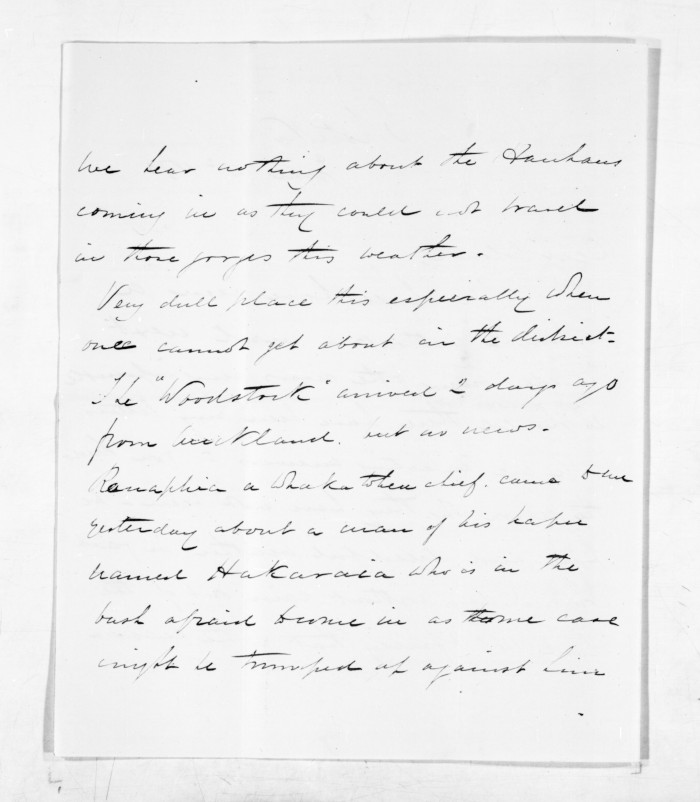 We hear nothing about the Hauhaus
coming in as they could not travel
in those gorges this weather.
Very dull place this especially when
one cannot get about in the district-
The "Woodstock" arrived 2 days ago
from Auckland. but no news.
a Whakatohea chief. came to me
yesterday about a man of his hapu
named Hakaraia who is in the
bush afraid to come in as some case
might be trumped up against him